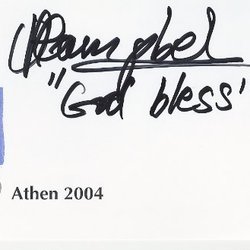 "God bless"
Athen 2004